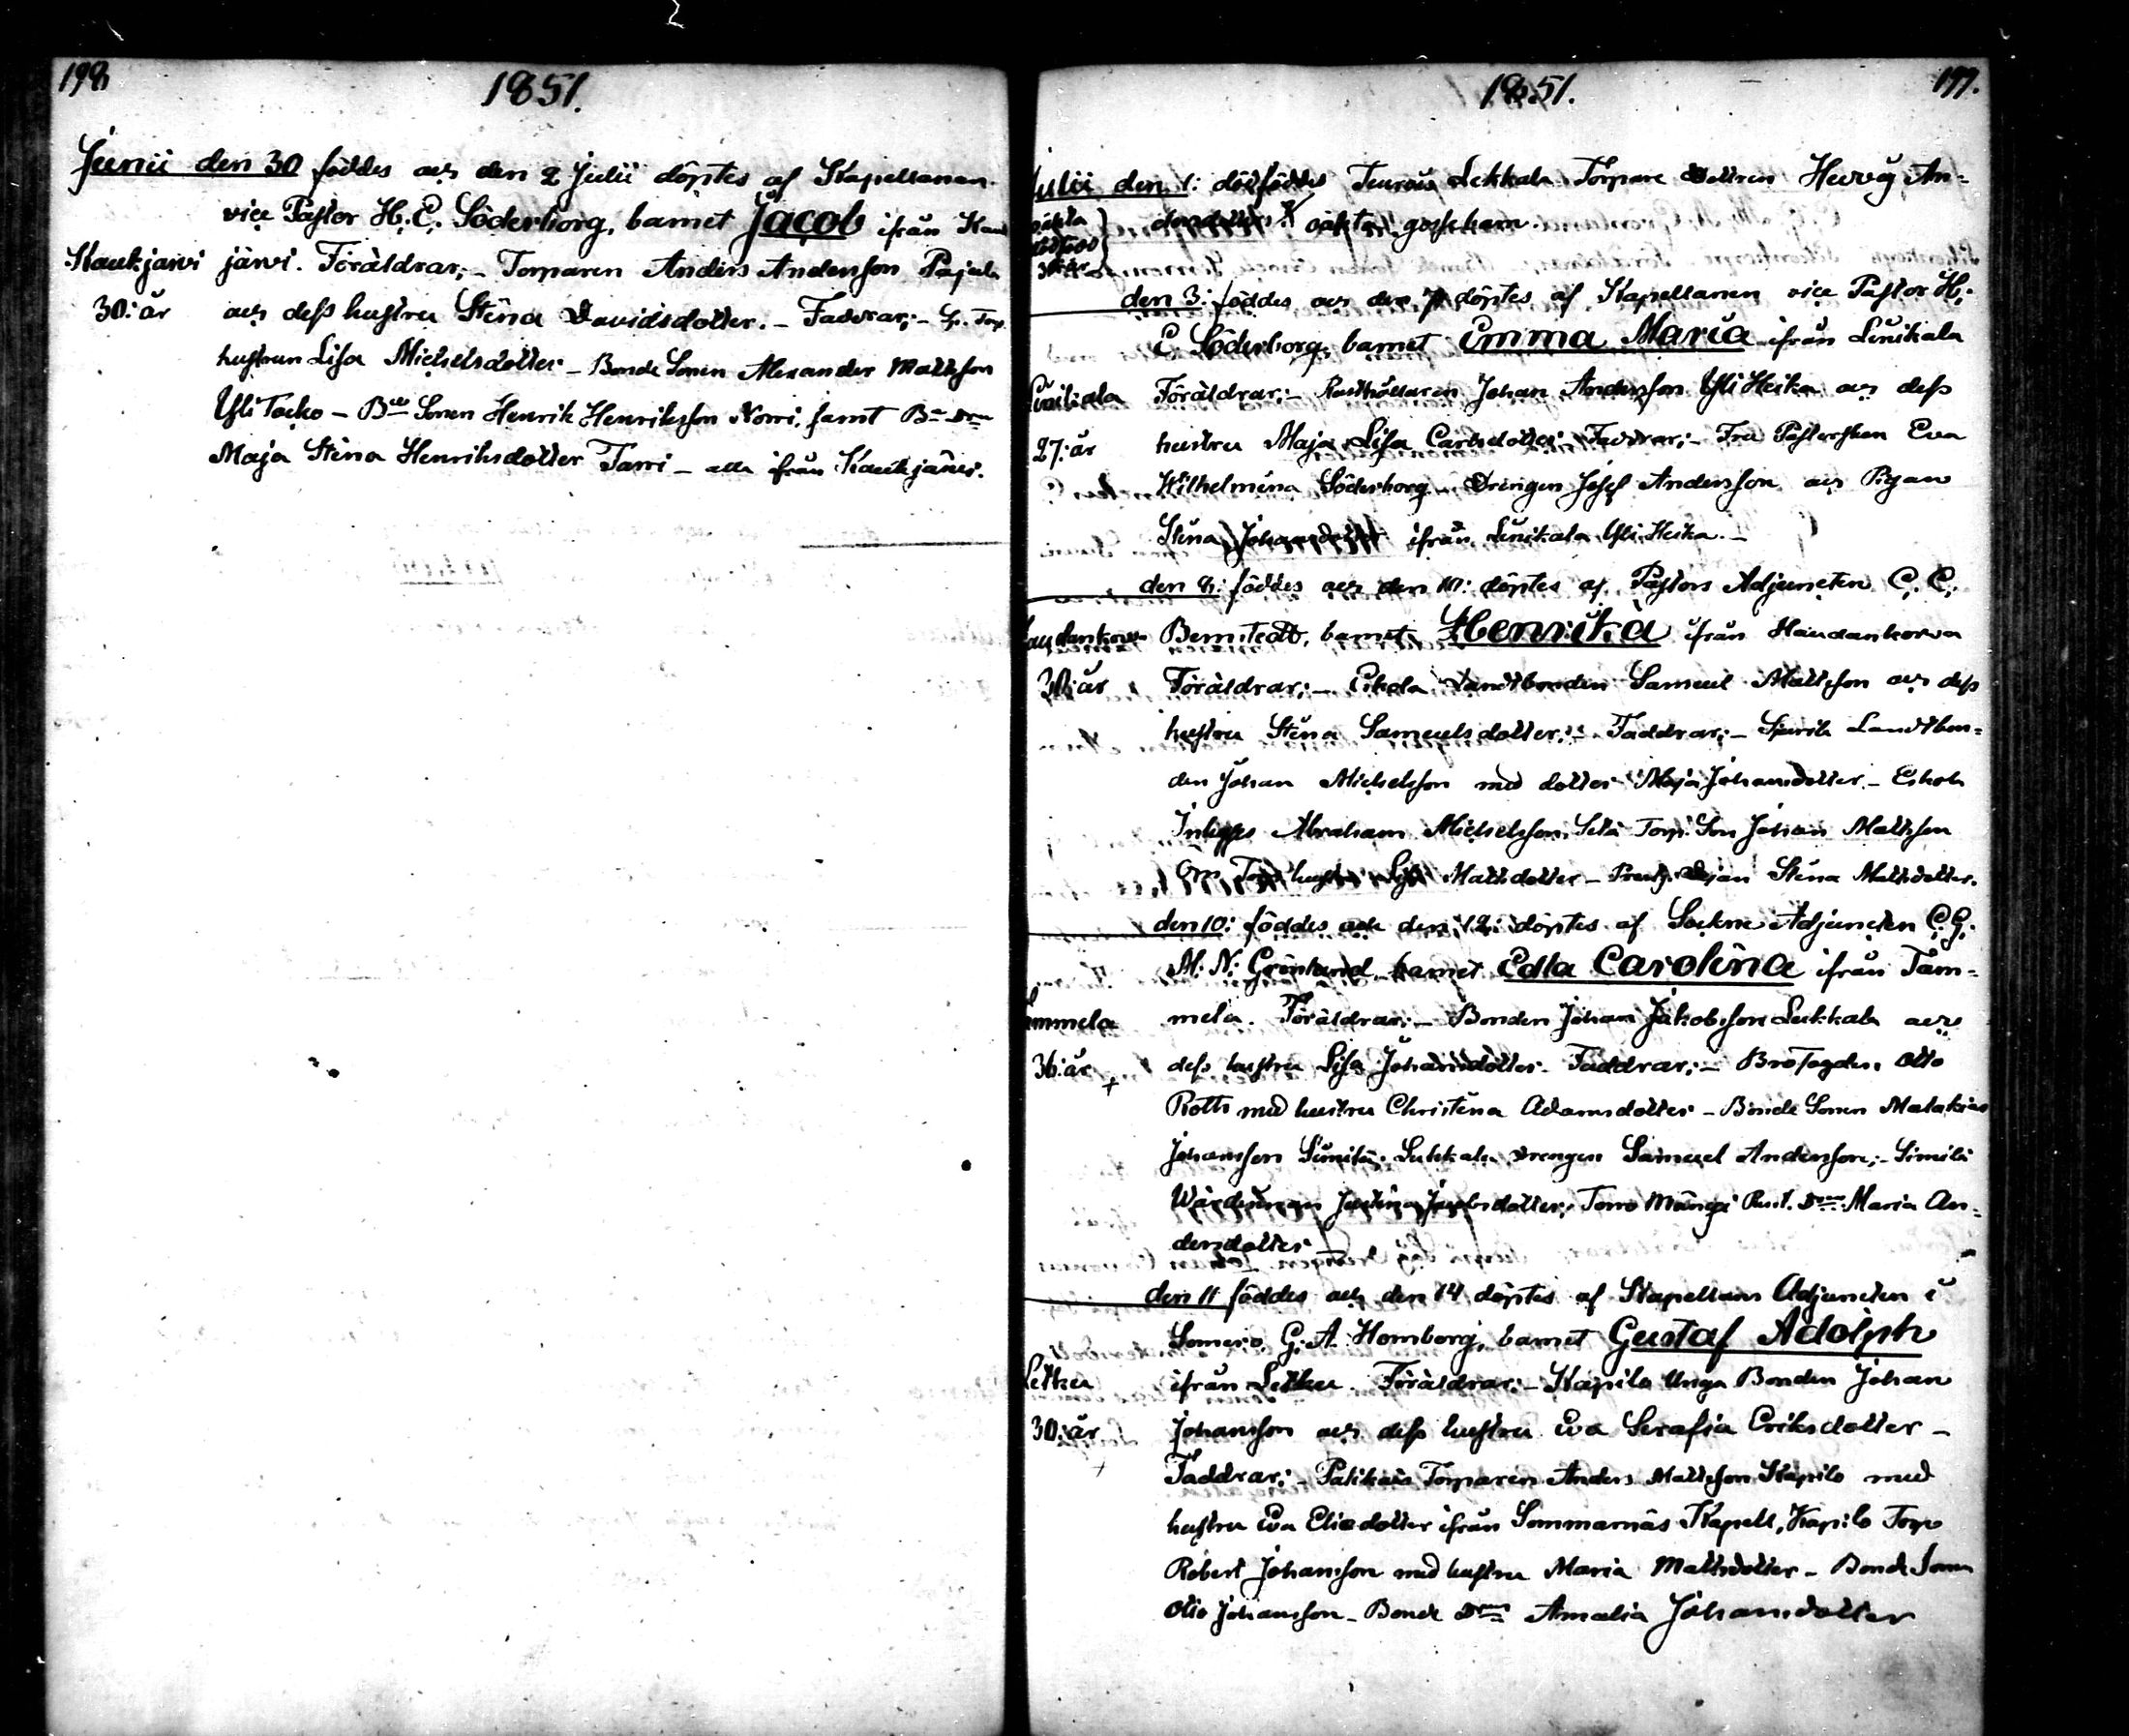 198
1851.
Junii den 30 föddes och den 2 Julii döptes af Kapellanen
vice Pastor H. E. Söderborg, barnet Jacob ifrån Kauk
Kaukjärvi järvi. Föräldrar; – Torparen Anders Andersson Pajula
30: år och dess hustru Stina Davidsdotter. – Faddrar; –
hustrun Lisa Michelsdotter – Bonde Sonen Alexander Mattsson
Yli – Bde Sonen Henrik Henriksson Norri, samt
Maja Stina Henriksdotter Tarri – alla ifrån Kaukjärvi.
1851. 197.
Julii den 1: dödföddes Lekkala Torpare dottren Hevvig An-
oäkta gossebarn.
den 3: föddes och den 7 döptes af Kapellanen vice Pastor H.
E Söderborg, barnet Emma Maria ifrån Liuikala
Föräldrar; – Rusthållaren Johan Andersson Yli Heika och dess
27: år hustru Maja Lisa Carlsdotter Faddrar; – Fru Pastorskan Eva
Wilhelmina Söderborg – Drengen Josef Andersson och Pigan
Stina Johansdotter ifrån Liuikala Yli Heika. –
den 8: föddes och den 10: döptes af Pastors Adjuncten C. E.
Bernstedt, barnet Henrika ifrån Haudankorva
30: år Föräldrar; – Eskola Landtbonden Samuel Mattsson och dess
hustru Stina Samuelsdotter; – Faddrar; – Landtbon-
den Johan Michelsson med dotter Maja Johansdotter – Eskola
Inhyses Abraham Michelsson, Torp. Son Johan Mattsson
Mattsdotter – Stina Mattsdotter.
den 10: föddes och den 12: döptes af Sockne Adjuncten C. G.
M. N. Grönlund, barnet Edla Carolina ifrån Tam-
mmela mela. Föräldrar; – Bonden Johan Jakobsson Lukkala och
36: år + dess hustru Lisa Johansdotter Faddrar; – Brofogden Otto
Roth med hustru Christina Adamsdotter – Bonde Sonen Malakias
Johansson Lukkala drengen Samuel Andersson; –
Maria An-
dersdotter
den 11 föddes och den 14 döptes af Kapellans Adjuncten i
Somero, G. A. Homborg, barnet Gustaf Adolph
Letku ifrån Letku. Föräldrar; – Kapilo Unga Bonden Johan
30: år Johansson och dess hustru Eva Serafia Eriksdotter –
+ Faddrar; – Torparen Anders Mattsson Kapilo med
hustru Eva Eliedotter ifrån Sommarnäs Kapell, Kapilo Torp
Robert Johansson med hustru Maria Mattsdotter – Bonde Sonen
Otto Johansson – Bonde Amalia Johansdotter